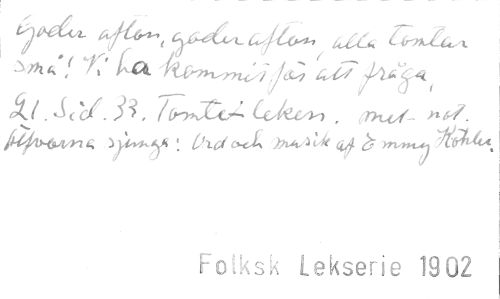 Goder afton, goder afton, alla tomtar
små! Vi ha kommit för att fråga,
21. Sid. 33. Tomte-leken. met. not.
Älfvorna sjunga: Ord och musik af Emmy Köhler.
Folksk Lekserie 1902